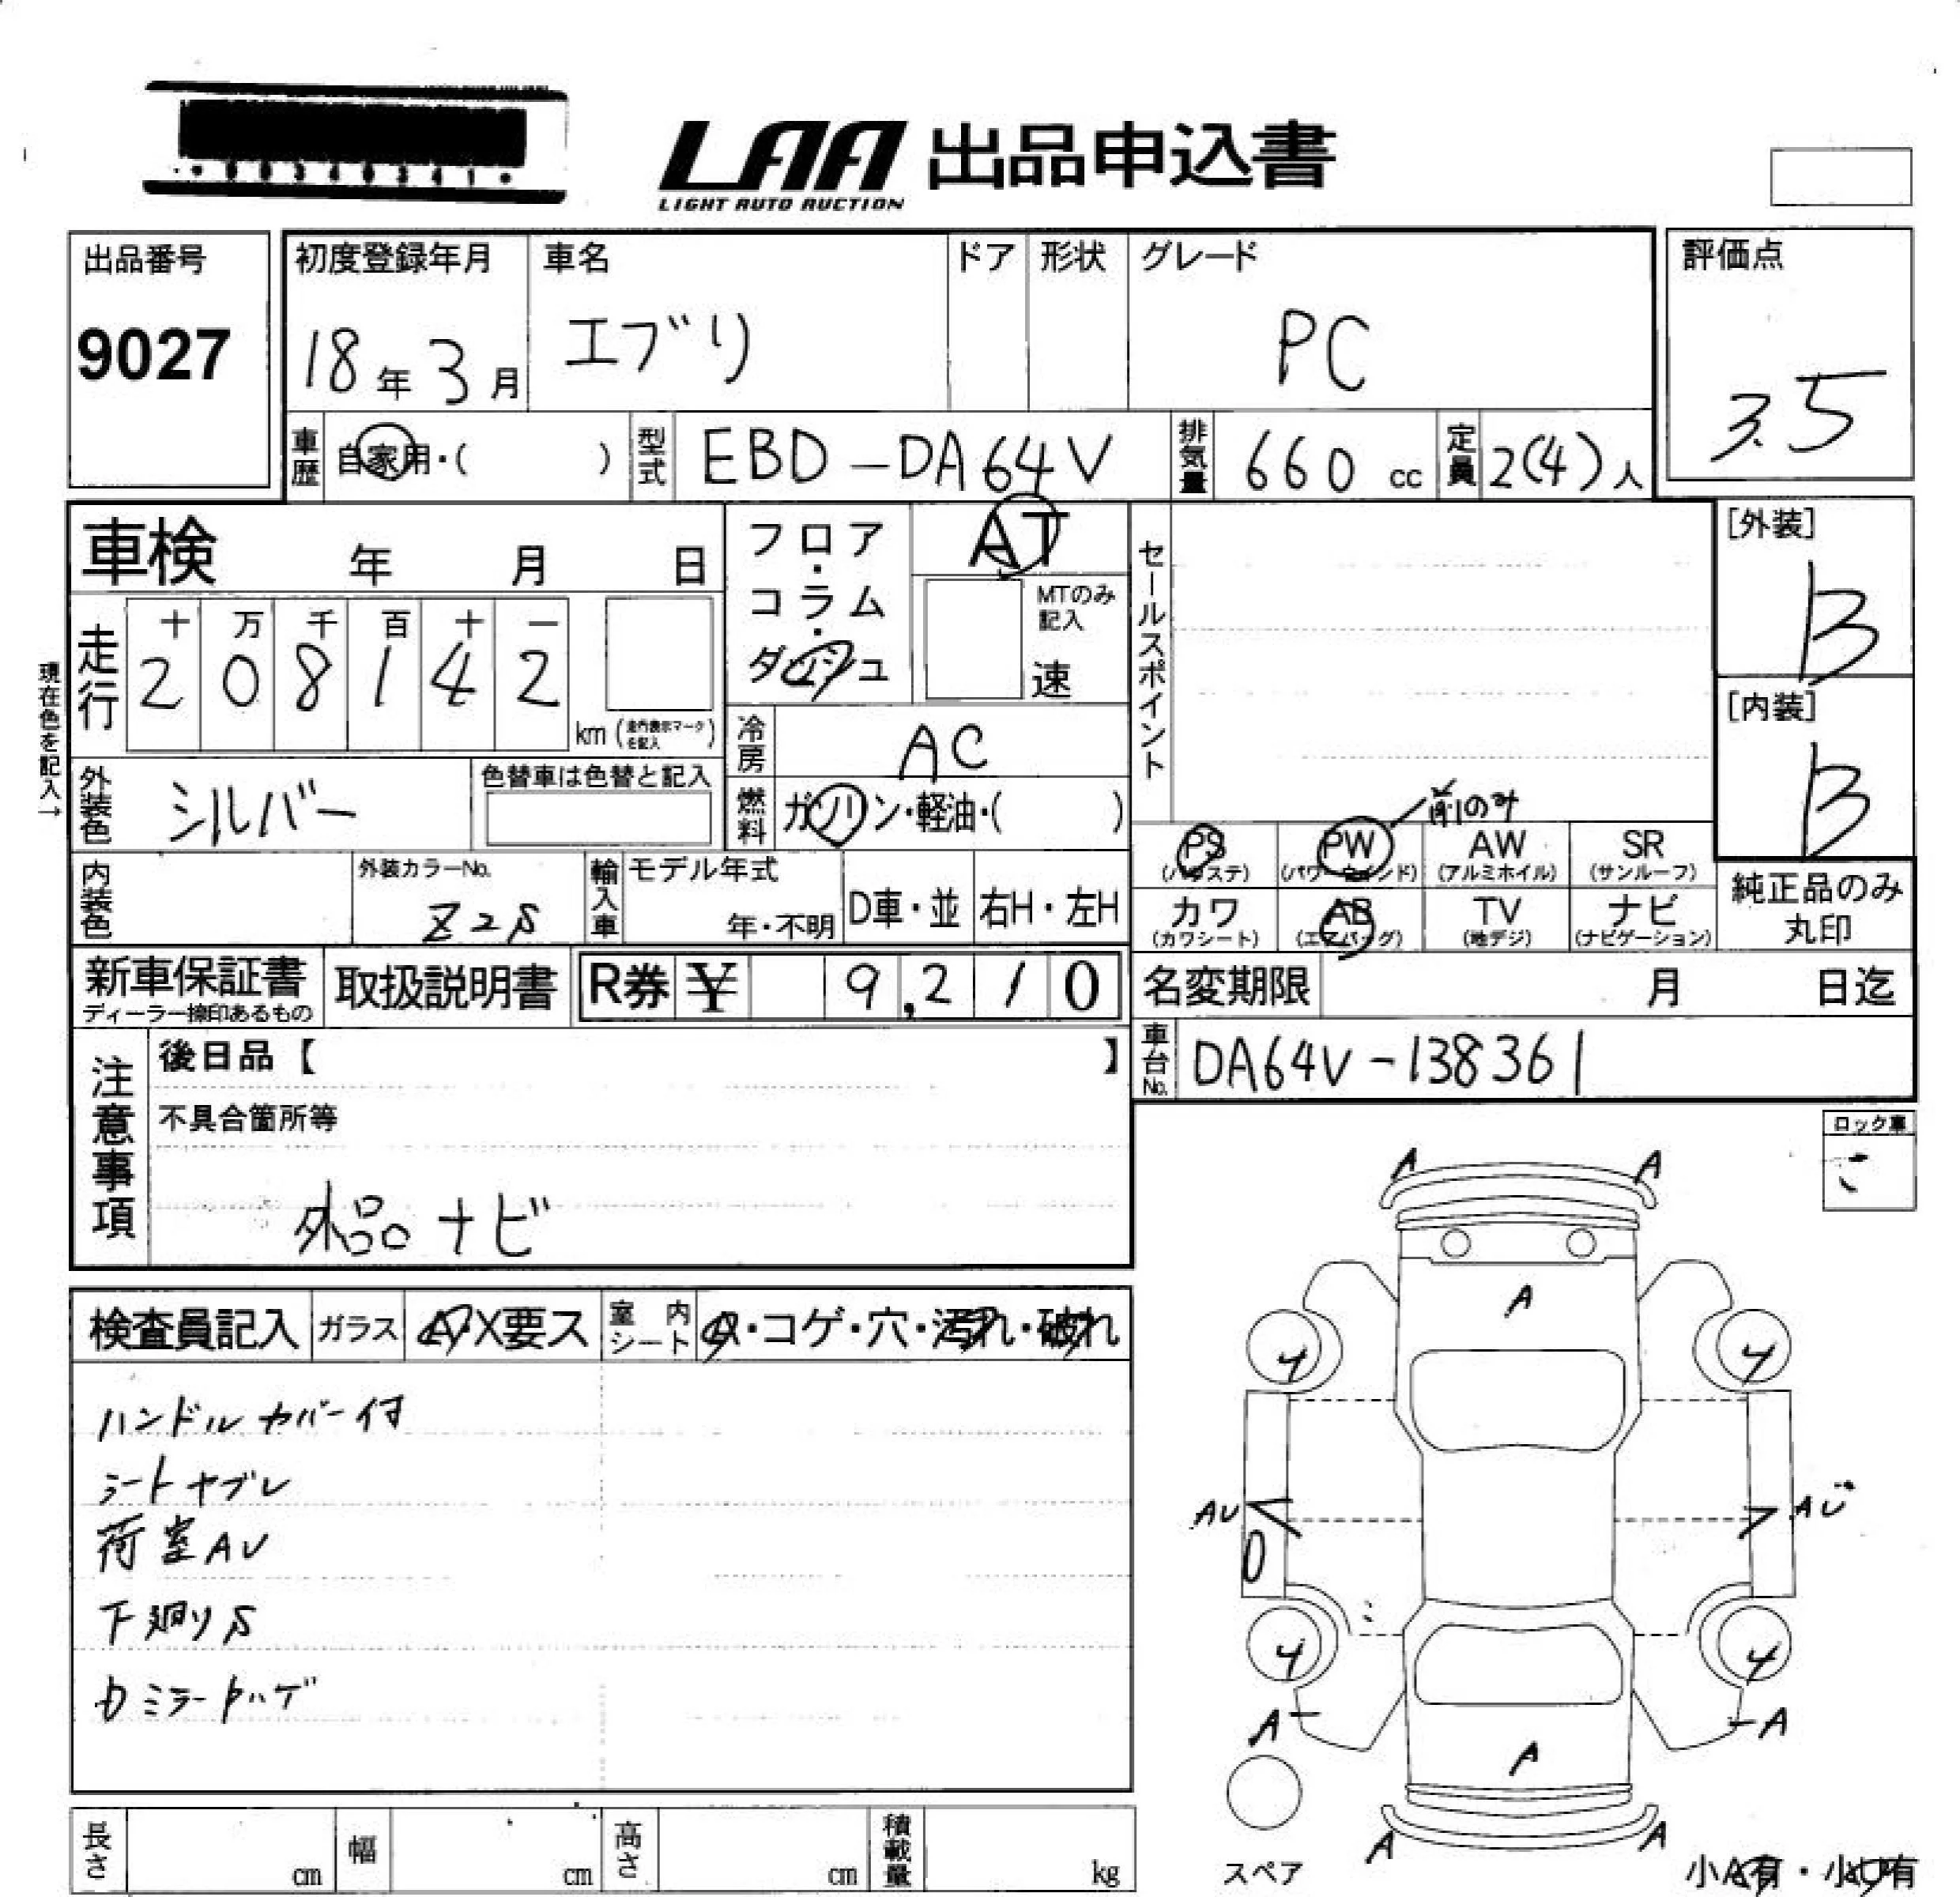 LAA 出品申込書
LIGHT AUTO AUCTION
出品番号
9027
初度登録年月
18年3月
車名
エブリ
ドア
形状
グレード
PC
評価点
3.5
車歴
自家用・( )
型式
EBD-DA64V
排気量
660 cc
定員
2(4)人
車検 年 月 日
フロア・コラム・ダッシュ
AT
MTのみ記入
速
セールスポイント
[外装]
B
[内装]
B
現在色を記入→
走行
十 万 千 百 十 一
2 0 8 1 4 2
km (走行表示マークを記入)
冷房
AC
外装色
シルバー
色替車は色替と記入
燃料
ガソリン・軽油・( )
前のみ
PS (パワステ)
PW (パワーウインド)
AW (アルミホイル)
SR (サンルーフ)
カワ (カワシート)
AB (エアバッグ)
TV (地デジ)
ナビ (ナビゲーション)
純正品のみ丸印
内装色
外装カラーNo.
Z2S
輸入車
モデル年式
年・不明
D車・並
右H・左H
新車保証書
ディーラー捺印あるもの
取扱説明書
R券 ¥ 9,210
名変期限 月 日迄
車台No.
DA64V-138361
注意事項
後日品【 】
不具合箇所等
外品ナビ
ロック車
検査員記入
ガラス
A・X要ス
室内シート
ス・コゲ・穴・汚れ・破れ
ハンドルカバー付
シートヤブレ
荷室AU
下廻りS
カミラーハゲ
A A
A
4 4
AU AU
4 4
A A
A
A A
スペア
小A有・小U有
長さ cm
幅 cm
高さ cm
積載量 kg